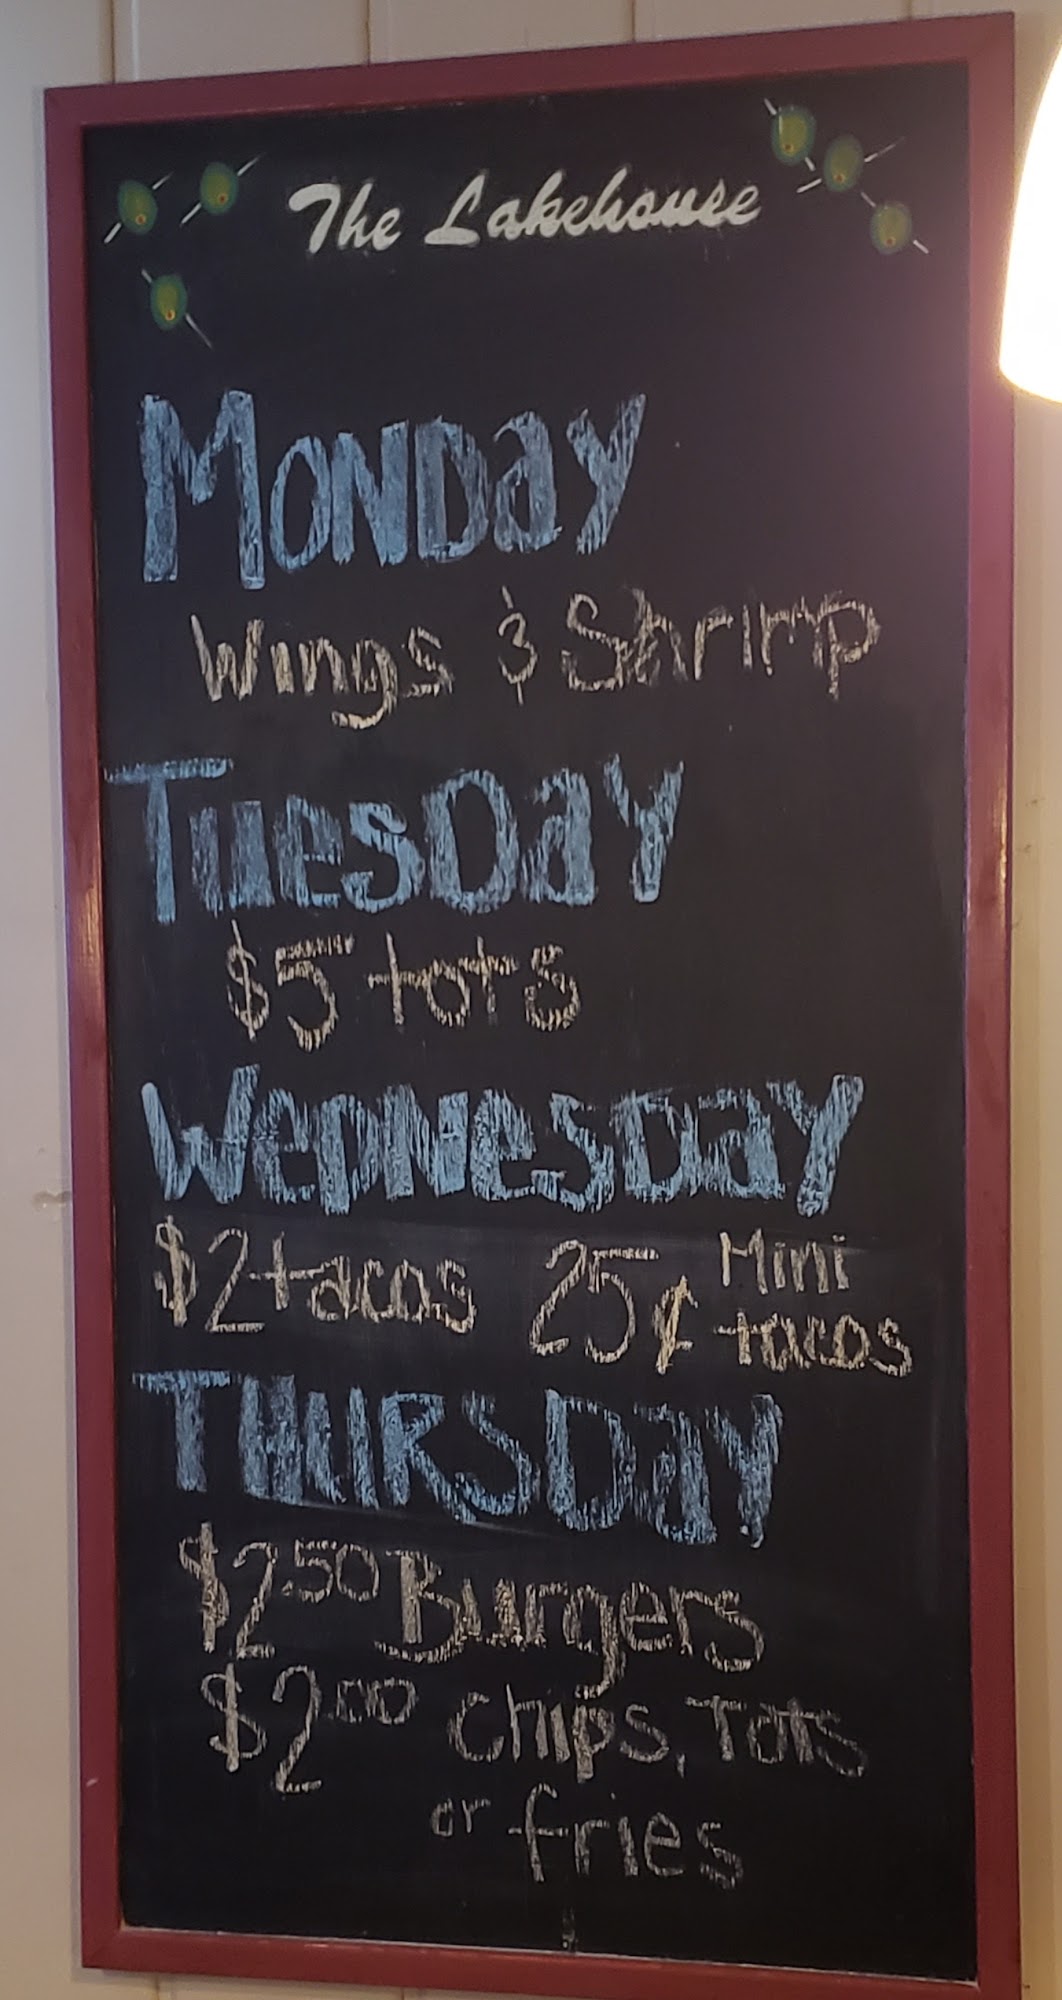 The Lakehouse
Monday
Wings & Shrimp
Tuesday
$5 tots
Wednesday
$2 tacos 25¢ Mini tacos
Thursday
$2.50 Burgers
$2.00 Chips, Tots
or fries